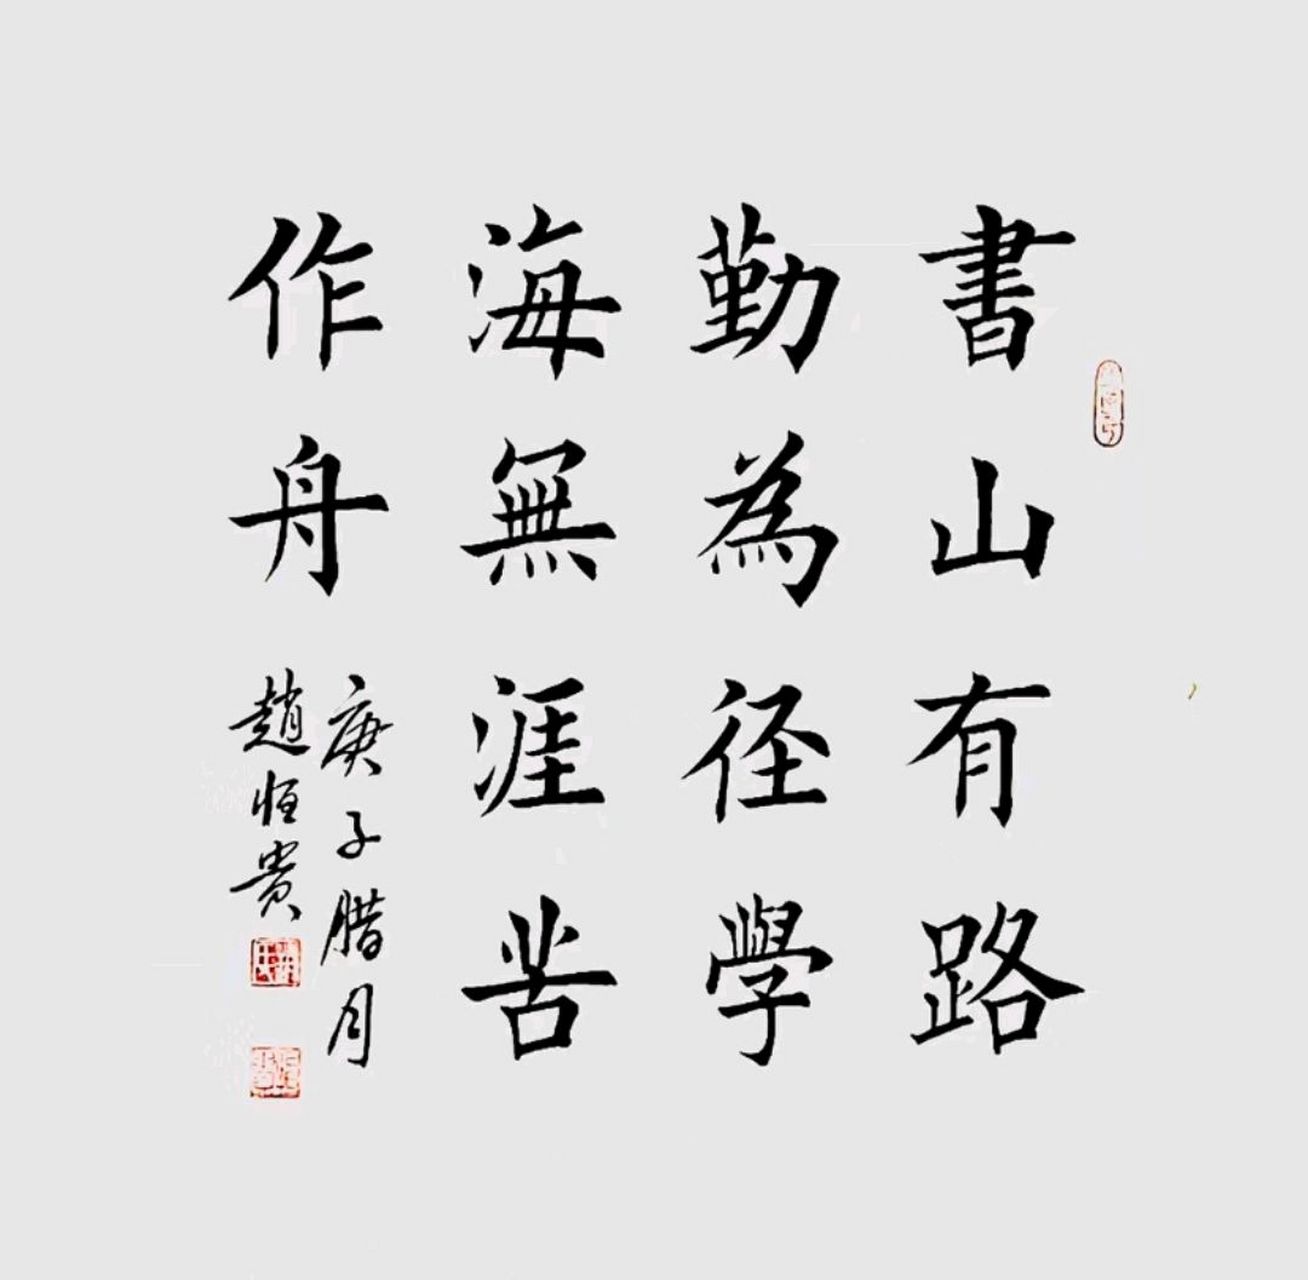 書山有路
勤為径學
海無涯苦
作舟
庚子腊月
趙恒貴